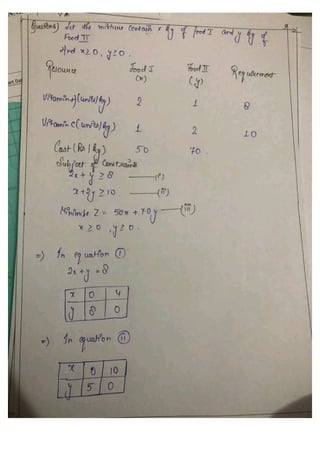 Question) Let the mixture contain x kg of food I and y kg of
Food II
And x≥0, y≥0.
Resource Food I Food II Requirement
(x) (y)
Vitamin A (units/kg) 2 1 8
Vitamin C (units/kg) 1 2 10
Cost (Rs/kg) 50 70.
Subject of Constraints
2x + y ≥ 8 —(i)
x + 2y ≥ 10 —(ii)
Minimise Z = 50x + 70y —(iii)
x ≥ 0, y ≥ 0.
=) In equation (I)
2x + y = 8
x 0 4
y 8 0
=) In equation (II)
x 0 10
y 5 0